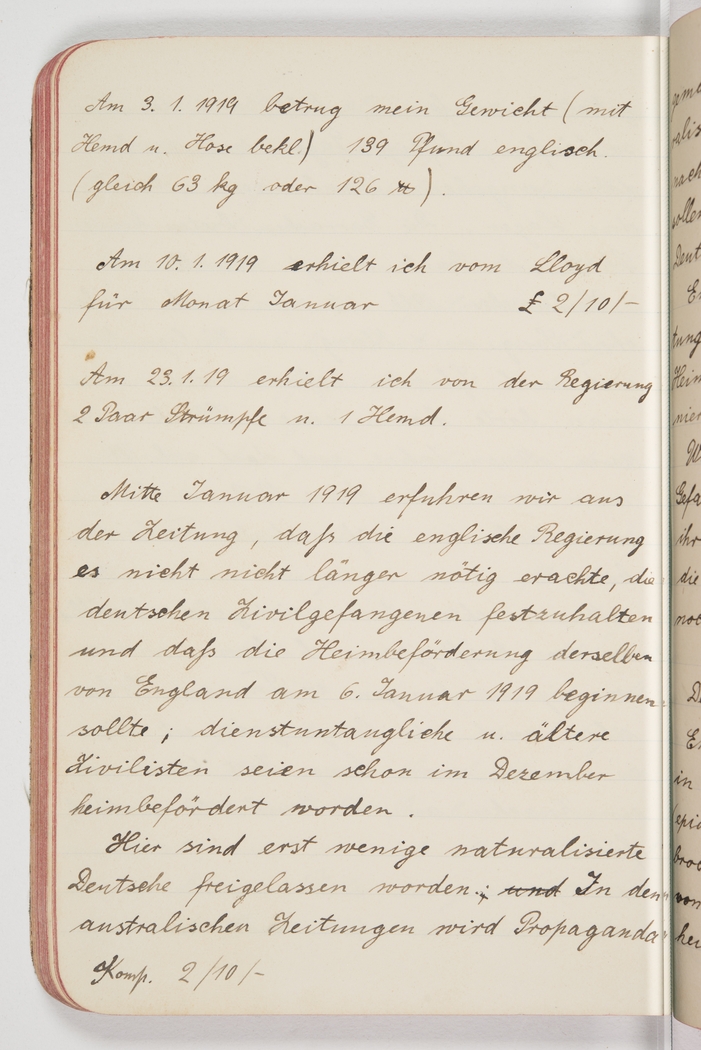 Am 3. 1. 1919 betrug mein Gewicht (mit
Hemd u. Hose bekl.) 139 Pfund englisch.
(gleich 63 kg oder 126 ℔).
Am 10. 1. 1919 erhielt ich vom Lloyd
für Monat Januar £ 2/10/-
Am 23. 1. 19 erhielt ich von der Regierung
2 Paar Strümpfe u. 1 Hemd.
Mitte Januar 1919 erfuhren wir aus
der Zeitung, daß die englische Regierung
es nicht nicht länger nötig erachte, die
deutschen Zivilgefangenen festzuhalten
und daß die Heimbeförderung derselben
von England am 6. Januar 1919 beginnen
sollte; dienstuntaugliche u. ältere
Zivilisten seien schon im Dezember
heimbefördert worden.
Hier sind erst wenige naturalisierte
Deutsche freigelassen worden.; und In den
australischen Zeitungen wird Propaganda
Komp. 2/10/-